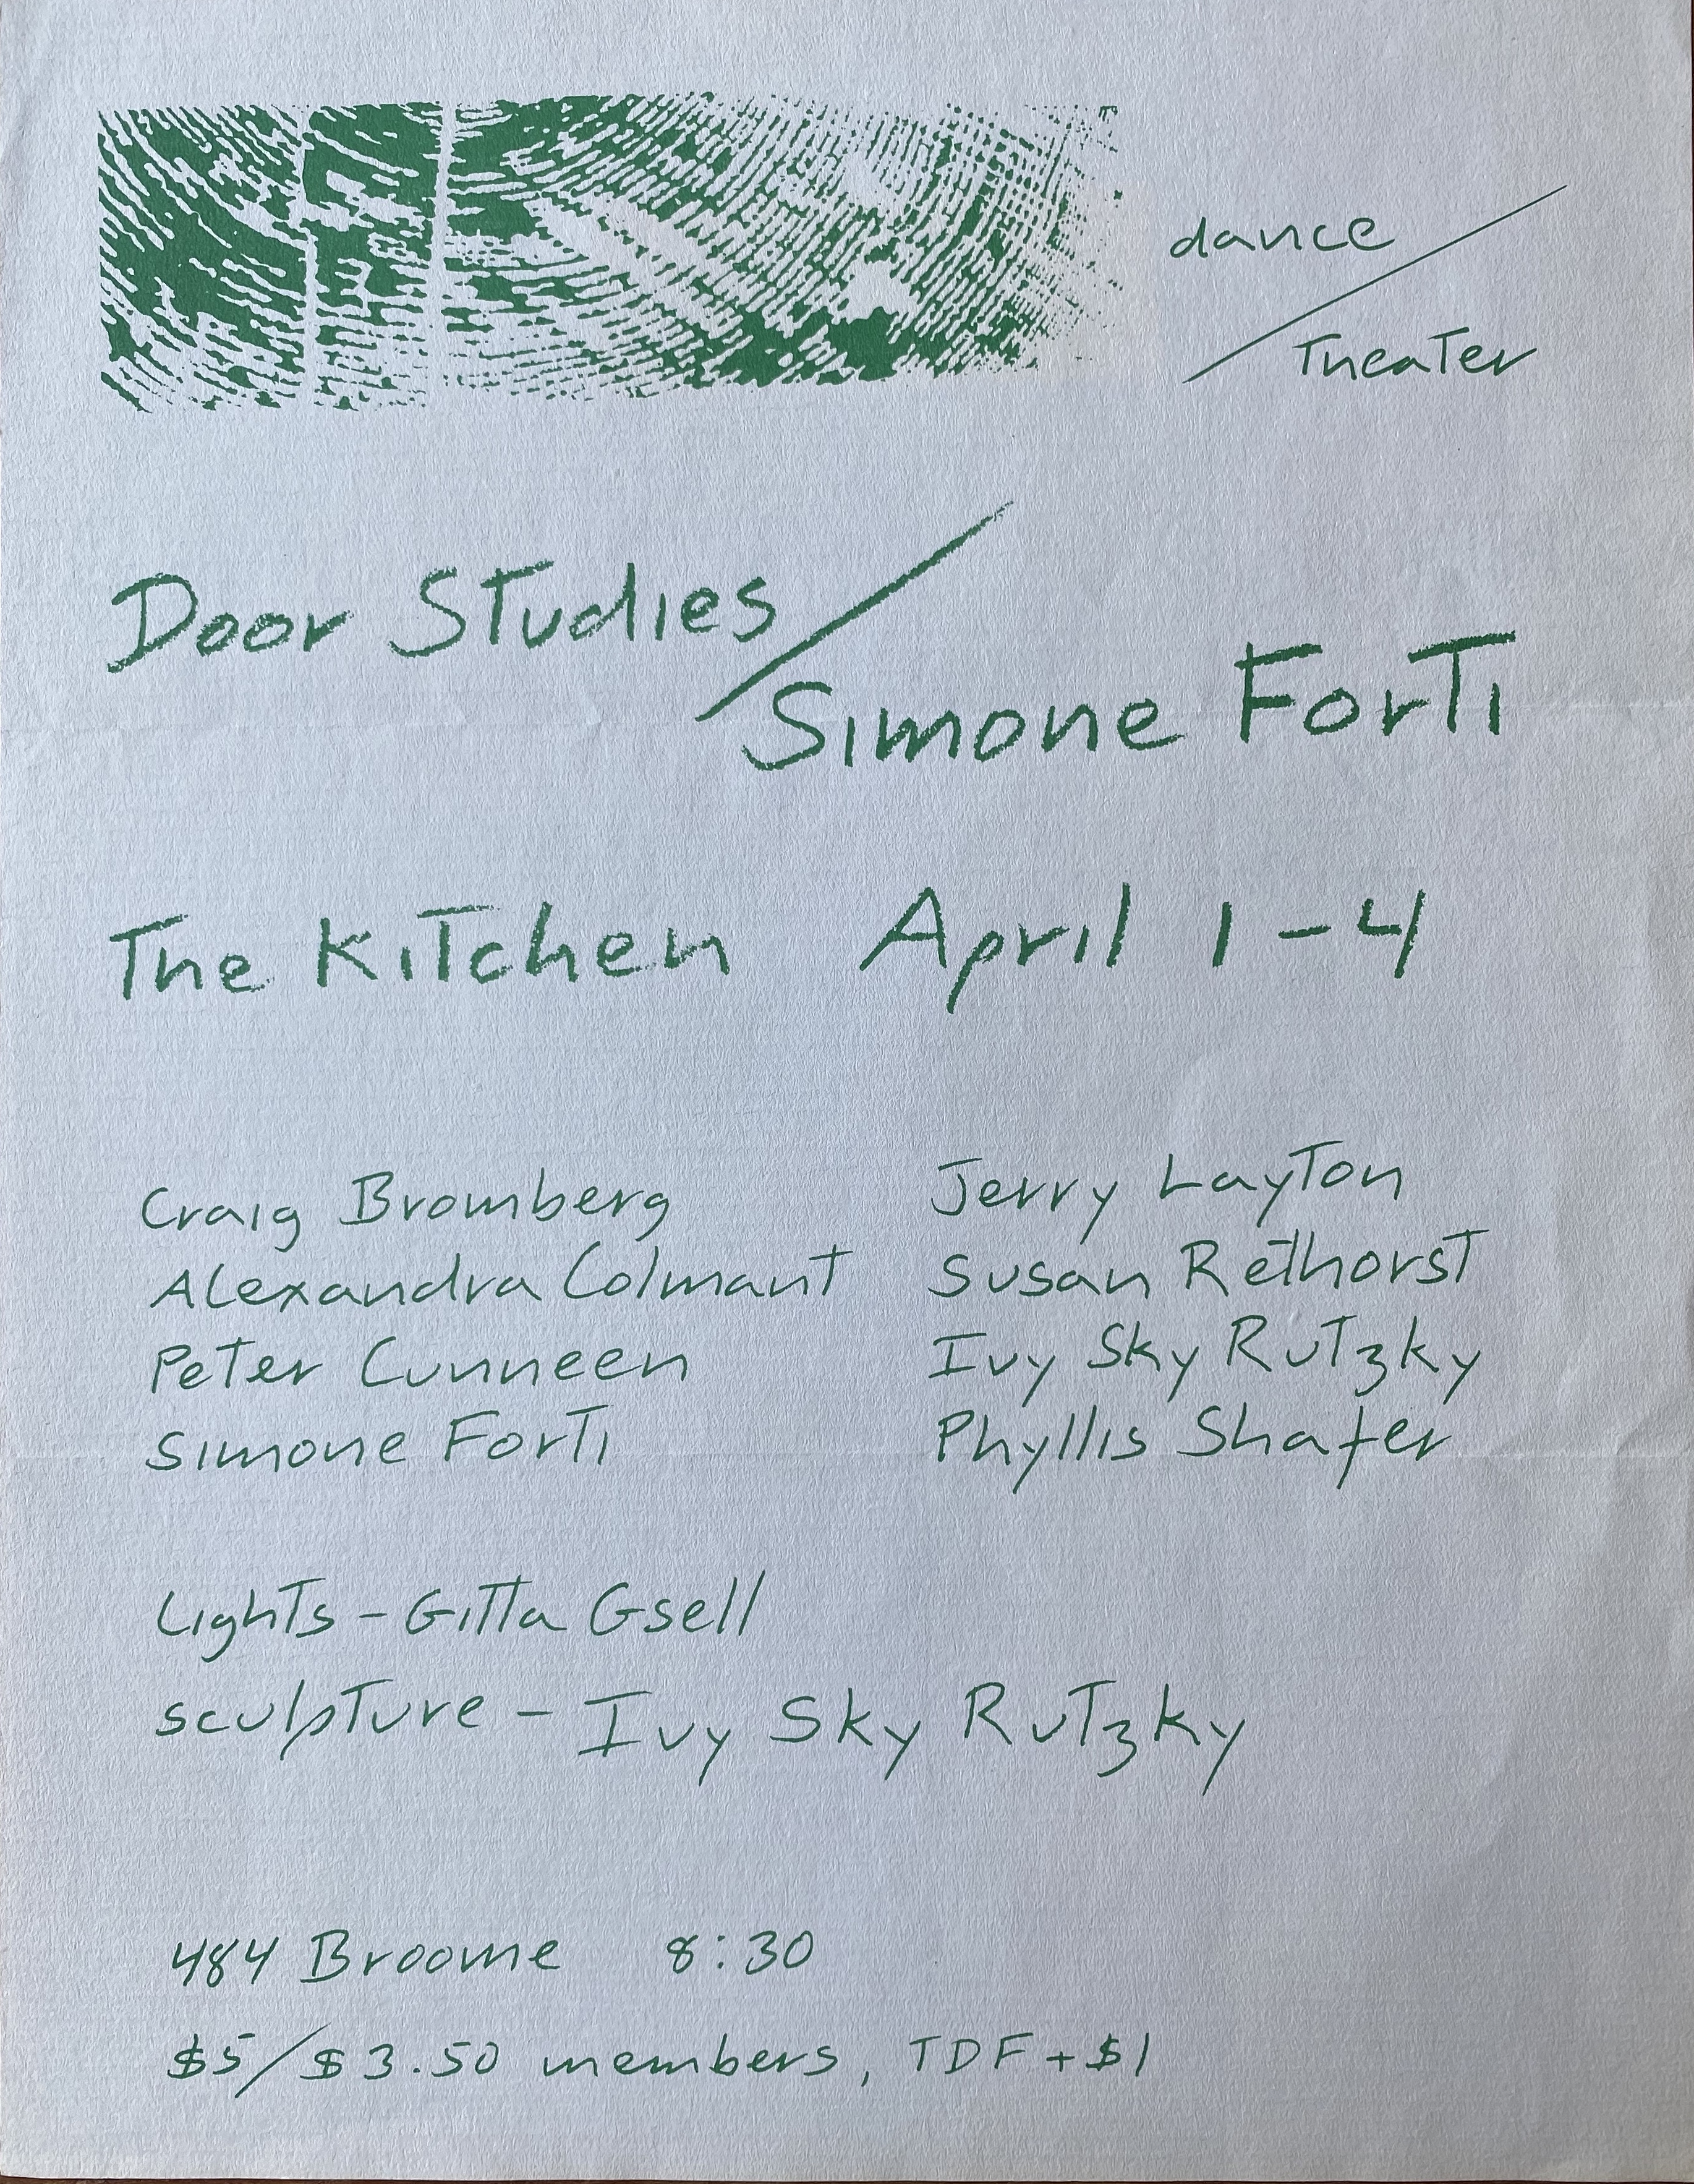 dance
/
Theater
Door Studies /
Simone Forti
The Kitchen April 1-4
Craig Bromberg
Alexandra Colmant
Peter Cunneen
Simone Forti
Jerry Layton
Susan Rethorst
Ivy Sky Rutzky
Phyllis Shafer
Lights - Gitta Gsell
sculpture - Ivy Sky Rutzky
484 Broome 8:30
$5/$3.50 members, TDF + $1